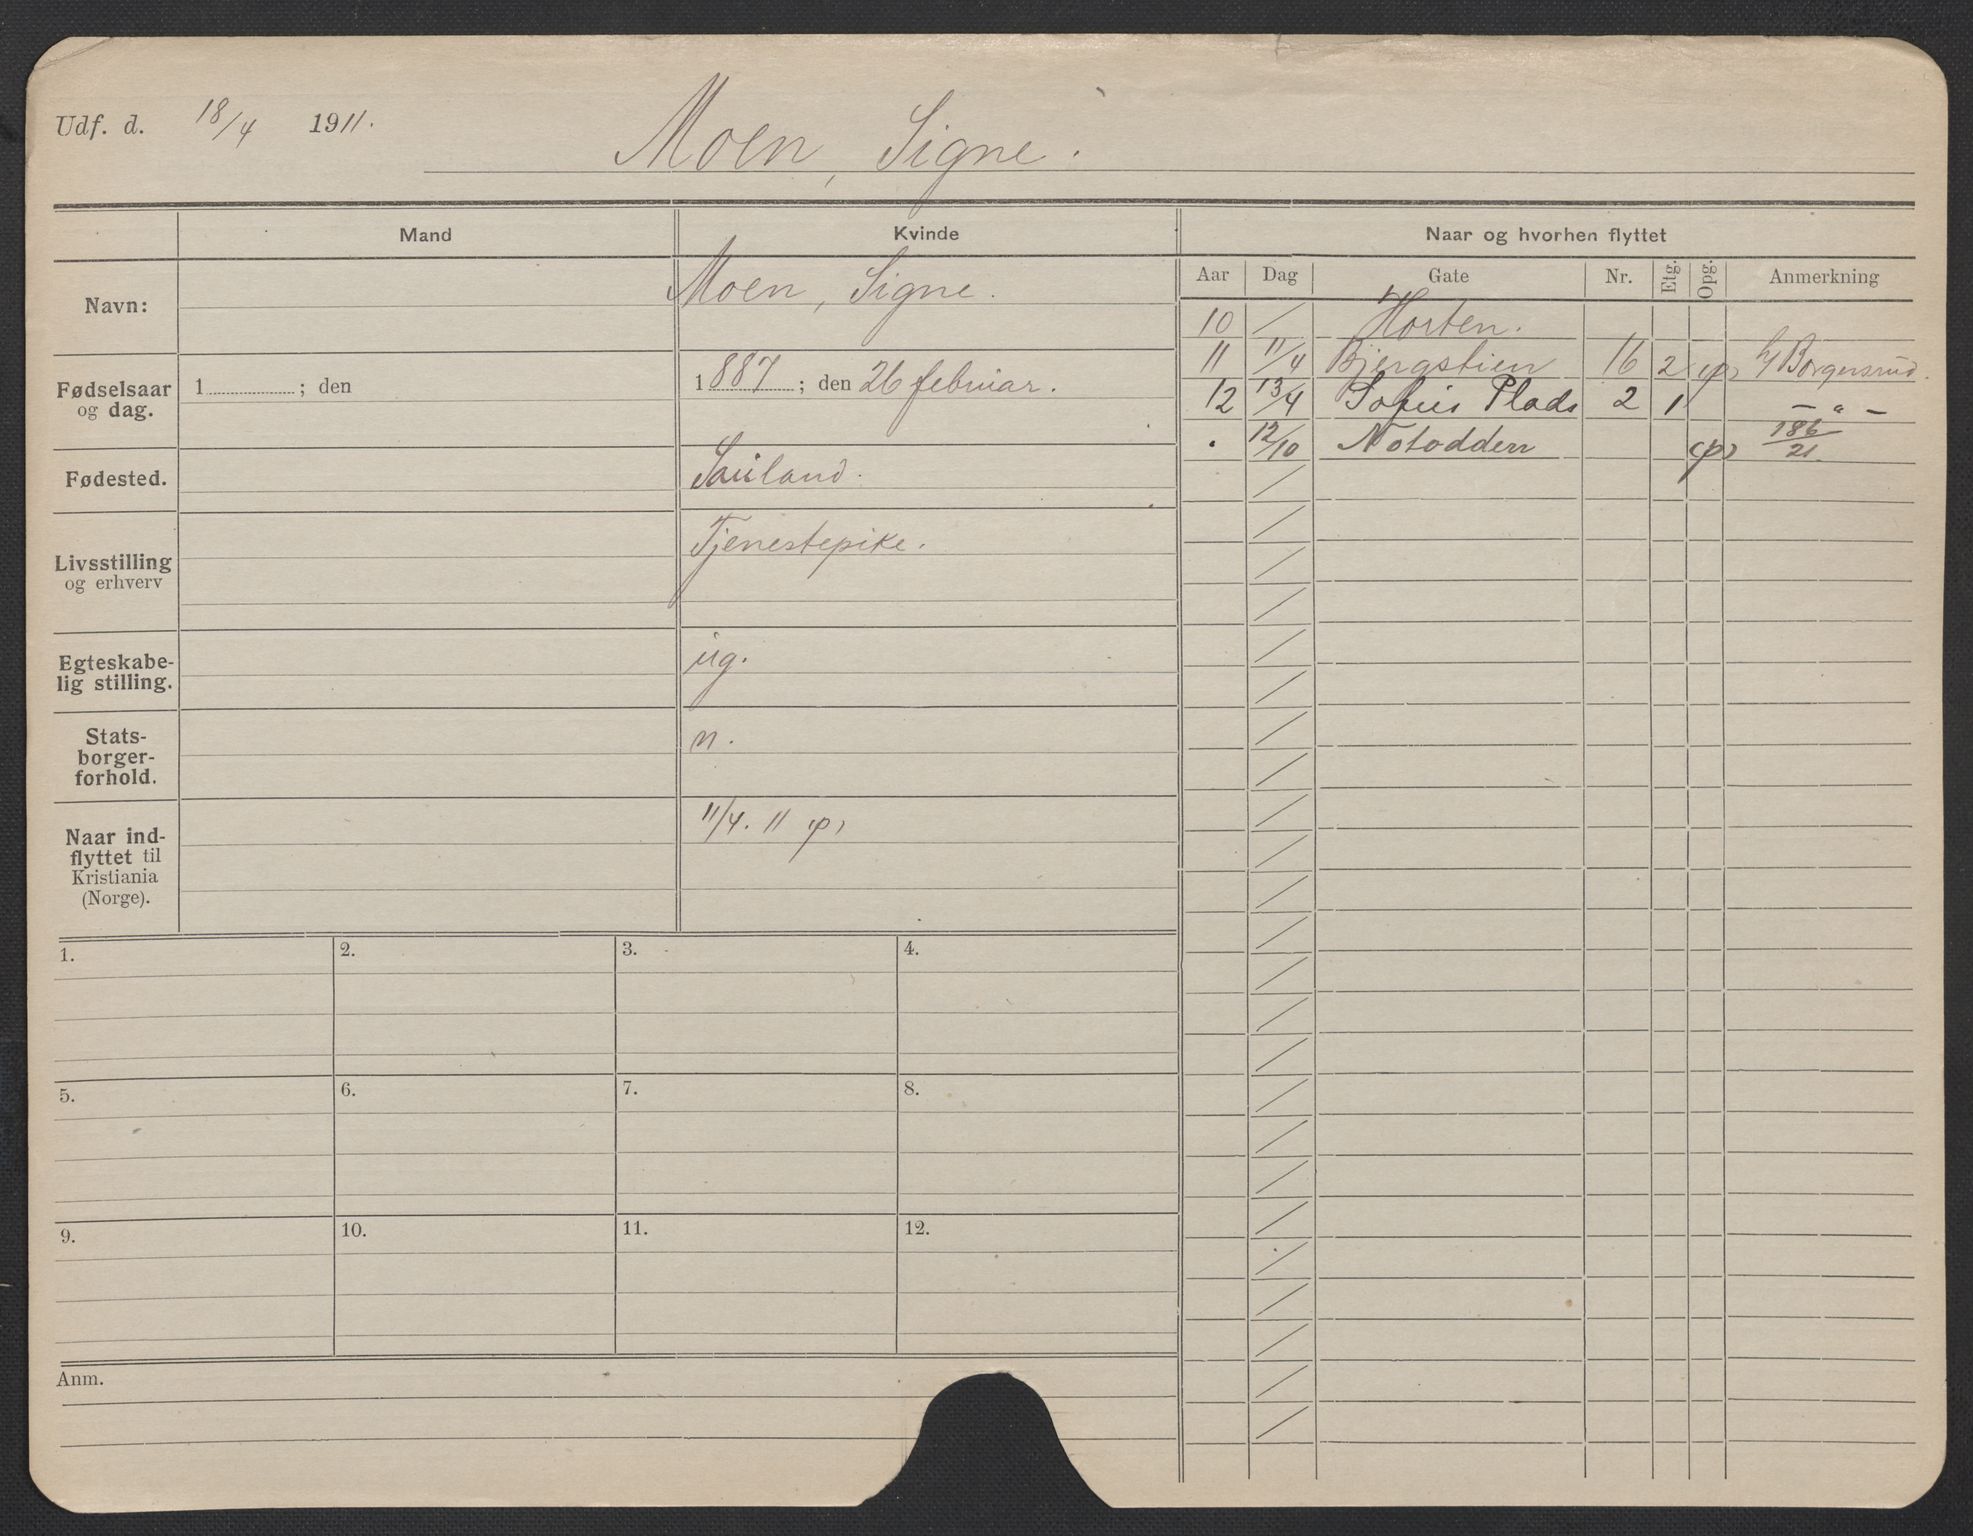 Udf. d. 18/4 1911.
Moen, Signe.
Mand
Kvinde
Naar og hvorhen flyttet
Aar Dag Gate Nr. Etg. Opg. Anmerkning
Navn:
Moen, Signe.
Fødselsaar og dag.
1 ; den
1887 ; den 26 februar.
Fødested.
Sauland.
Livsstilling og erhverv
Tjenestepike.
Egteskabe-
lig stilling.
ug.
Stats-
borger-
forhold.
n.
Naar ind-
flyttet til
Kristiania
(Norge).
11/4. 11 (p)
10 / Horten.
11 11/4 Bjergstien 16 2 (p) Borgersrud.
12 13/4 Sofies Plads 2 1 – " –
. 12/10 Notodden (p) 186/21
1. 2. 3. 4.
5. 6. 7. 8.
9. 10. 11. 12.
Anm.